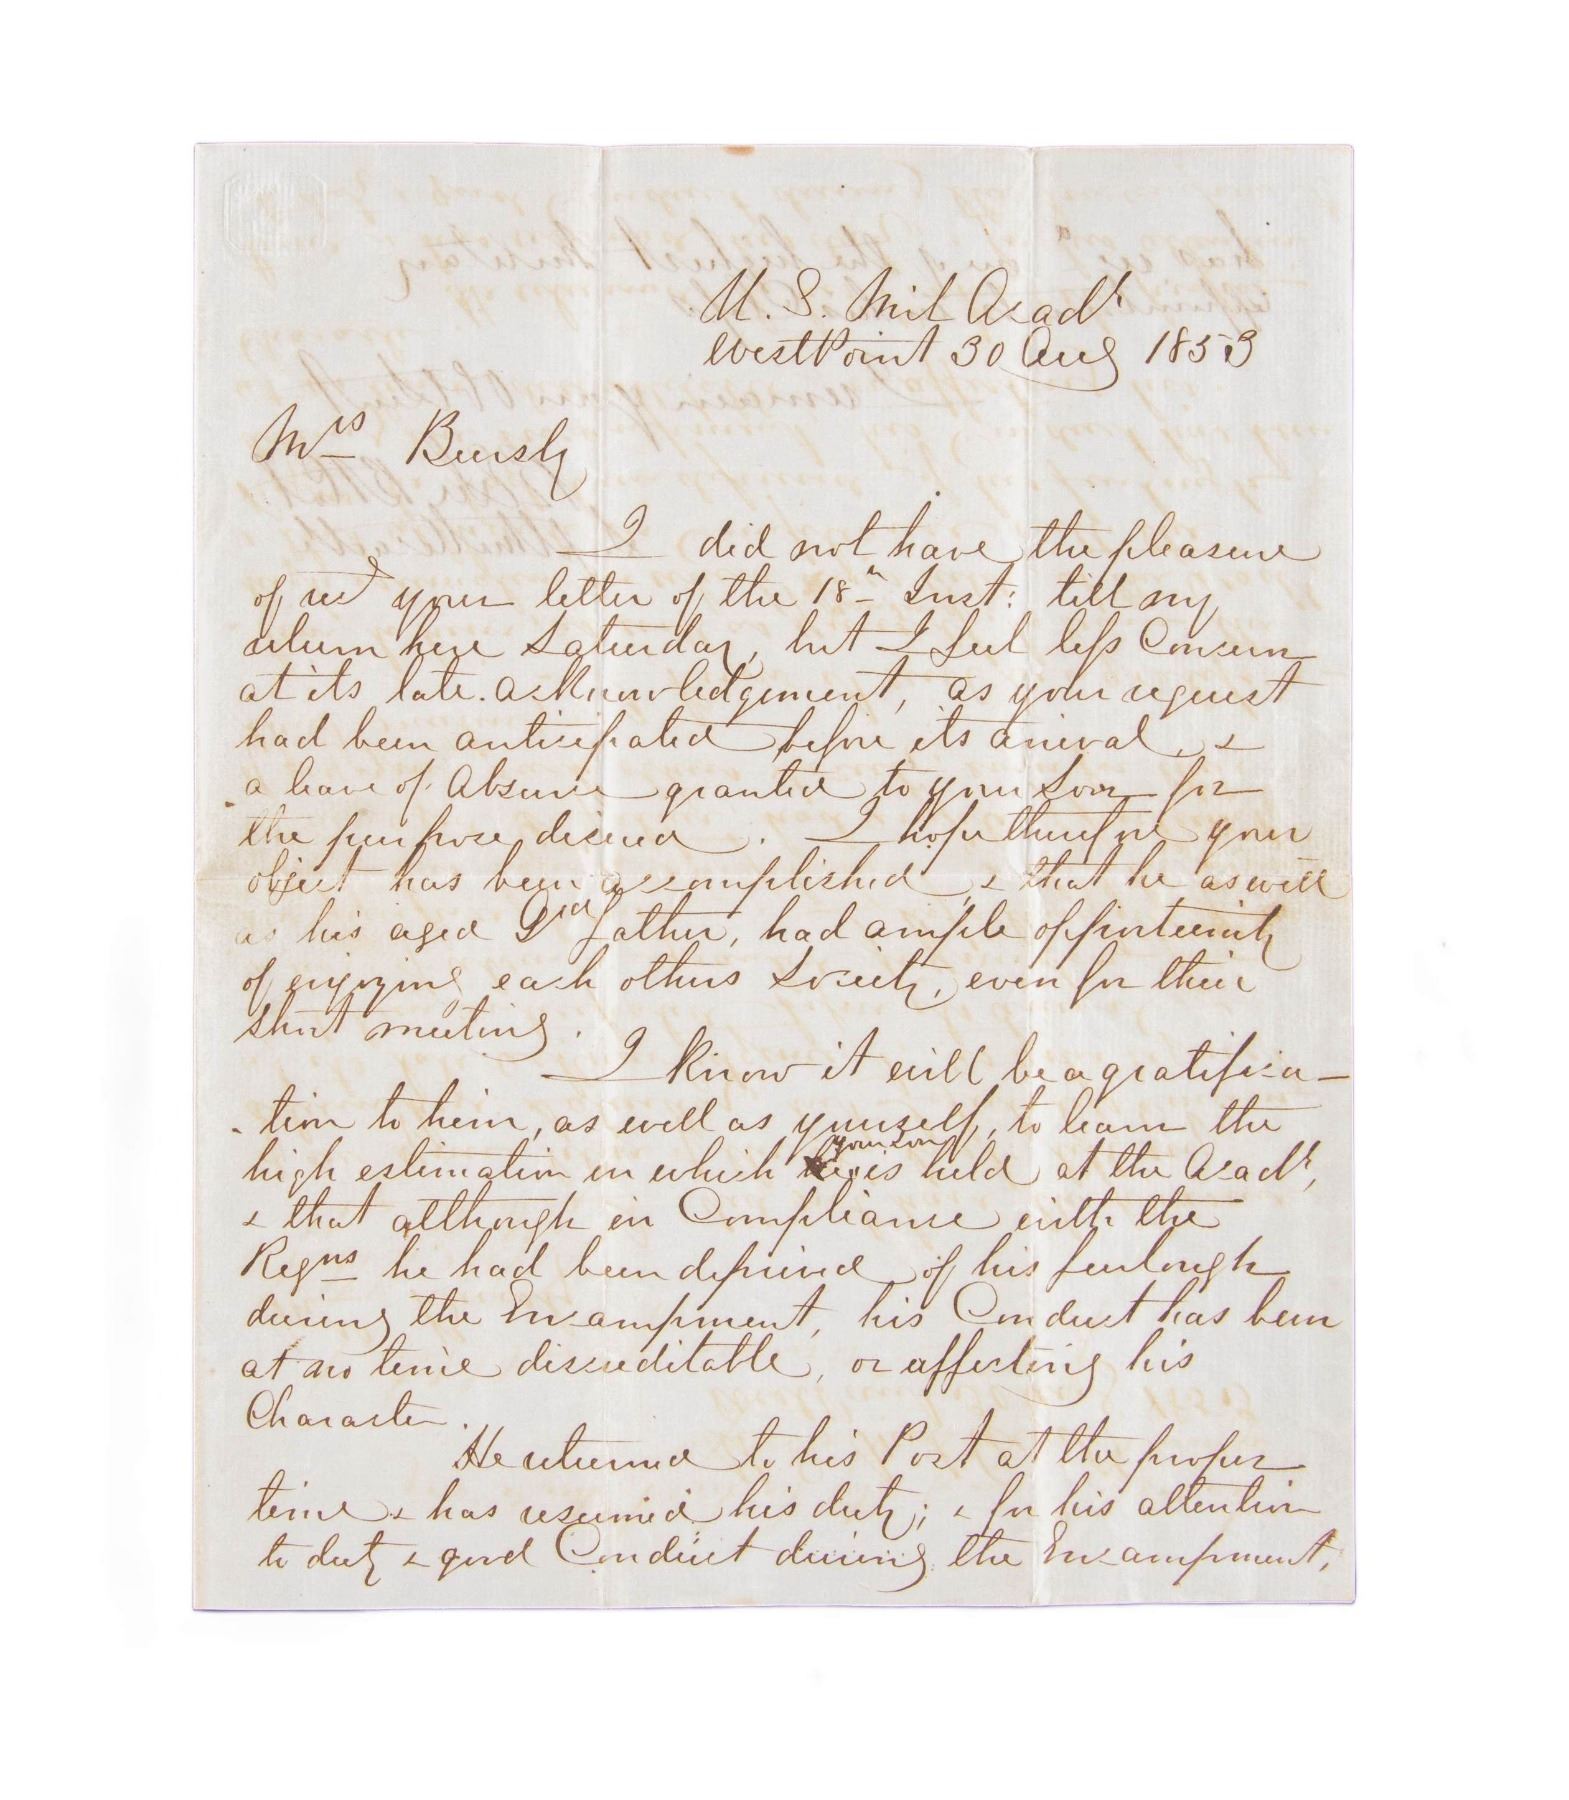 U. S. Mil Acady
West Point 30 Aug 1853
Mrs Bearsly
I did not have the pleasure
of recd your letter of the 18th Inst: till my
return here Saturday, but I feel less Concern
at its late acknowledgement, as your request
had been anticipated before its arrival, &
a leave of Absence granted to your Son for
the purpose desired. I hope therefore your
object has been accomplished, & that he as well
as his aged Grd father, had ample opportunity
of enjoying each others Society, even for their
short meeting.
I know it will be a gratifica-
-tion to him, as well as yourself, to learn the
your son
high estimation in which is held at the Acady,
& that although in Compliance with the
Regns he had been deprived of his furlough
during the Encampment, his Conduct has been
at no time discreditable, or affecting his
Character.
He returned to his Post at the proper
time & has resumed his duty; & for his attention
to duty & good Conduct during the Encampment,